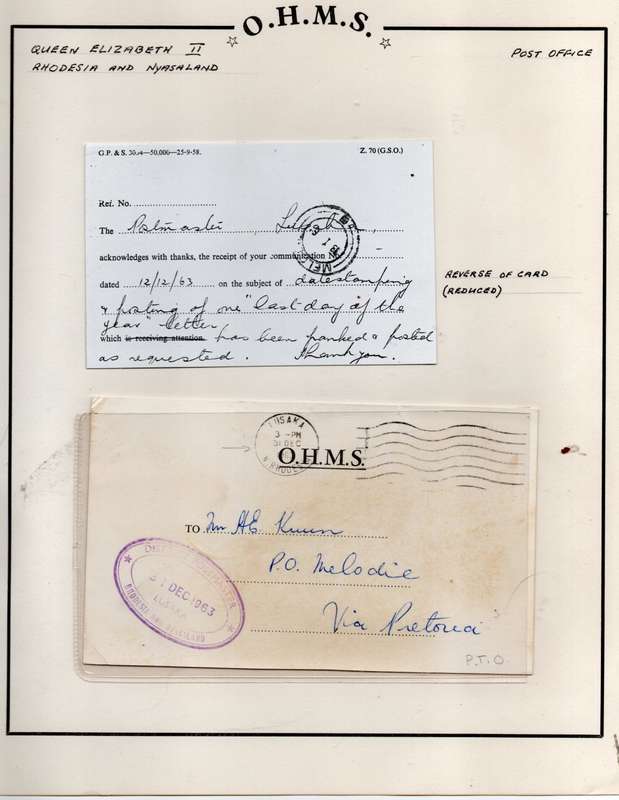 O.H.M.S.
QUEEN ELIZABETH II
POST OFFICE
RHODESIA AND NYASALAND
G.P. & S. —50,000—25-9-58.
Z. 70 (G.S.O.)
Ref. No.
The Postmaster, Lusaka,
acknowledges with thanks, the receipt of your communication No.
dated 12/12/63 on the subject of datestamping
& posting of one "last day of the
year" letter
which is receiving attention. has been franked & posted
as requested. Thank you.
REVERSE OF CARD
(REDUCED)
LUSAKA
3 - PM
31 DEC
N. RHODESIA
O.H.M.S.
TO Mr HE
P.O. Melodie
Via Pretoria
DISTRICT POSTMASTER
31 DEC 1963
LUSAKA
RHODESIA AND NYASALAND
P.T.O.